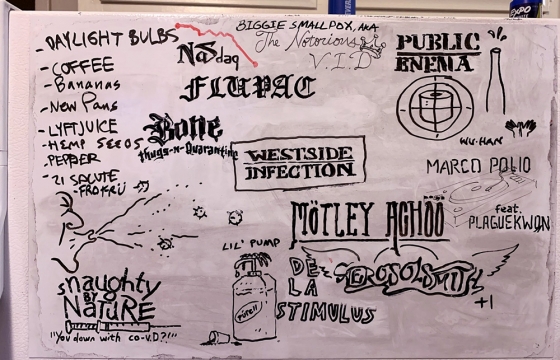 BIGGIE SMALLPOX, AKA
The Notorious
V.I.D
- DAYLIGHT BULBS
- COFFEE
- Bananas
- New Pans
- LYFTJUICE
- HEMP SEEDS
PEPPER
- 21 SALUTE
Nasdaq
FLUPAC
Bone
thugs-n-Quarantine
WESTSIDE
INFECTION
PUBLIC
ENEMA
WU-HAN
MARCO POLIO
feat.
PLAGUEKWON
MÖTLEY ACHÖÖ
AEROSOLSMITH
+1
LIL' PUMP
PURELL
DE
LA
STIMULUS
snaughty
BY
NATURE
"You down with co-V.D?!"